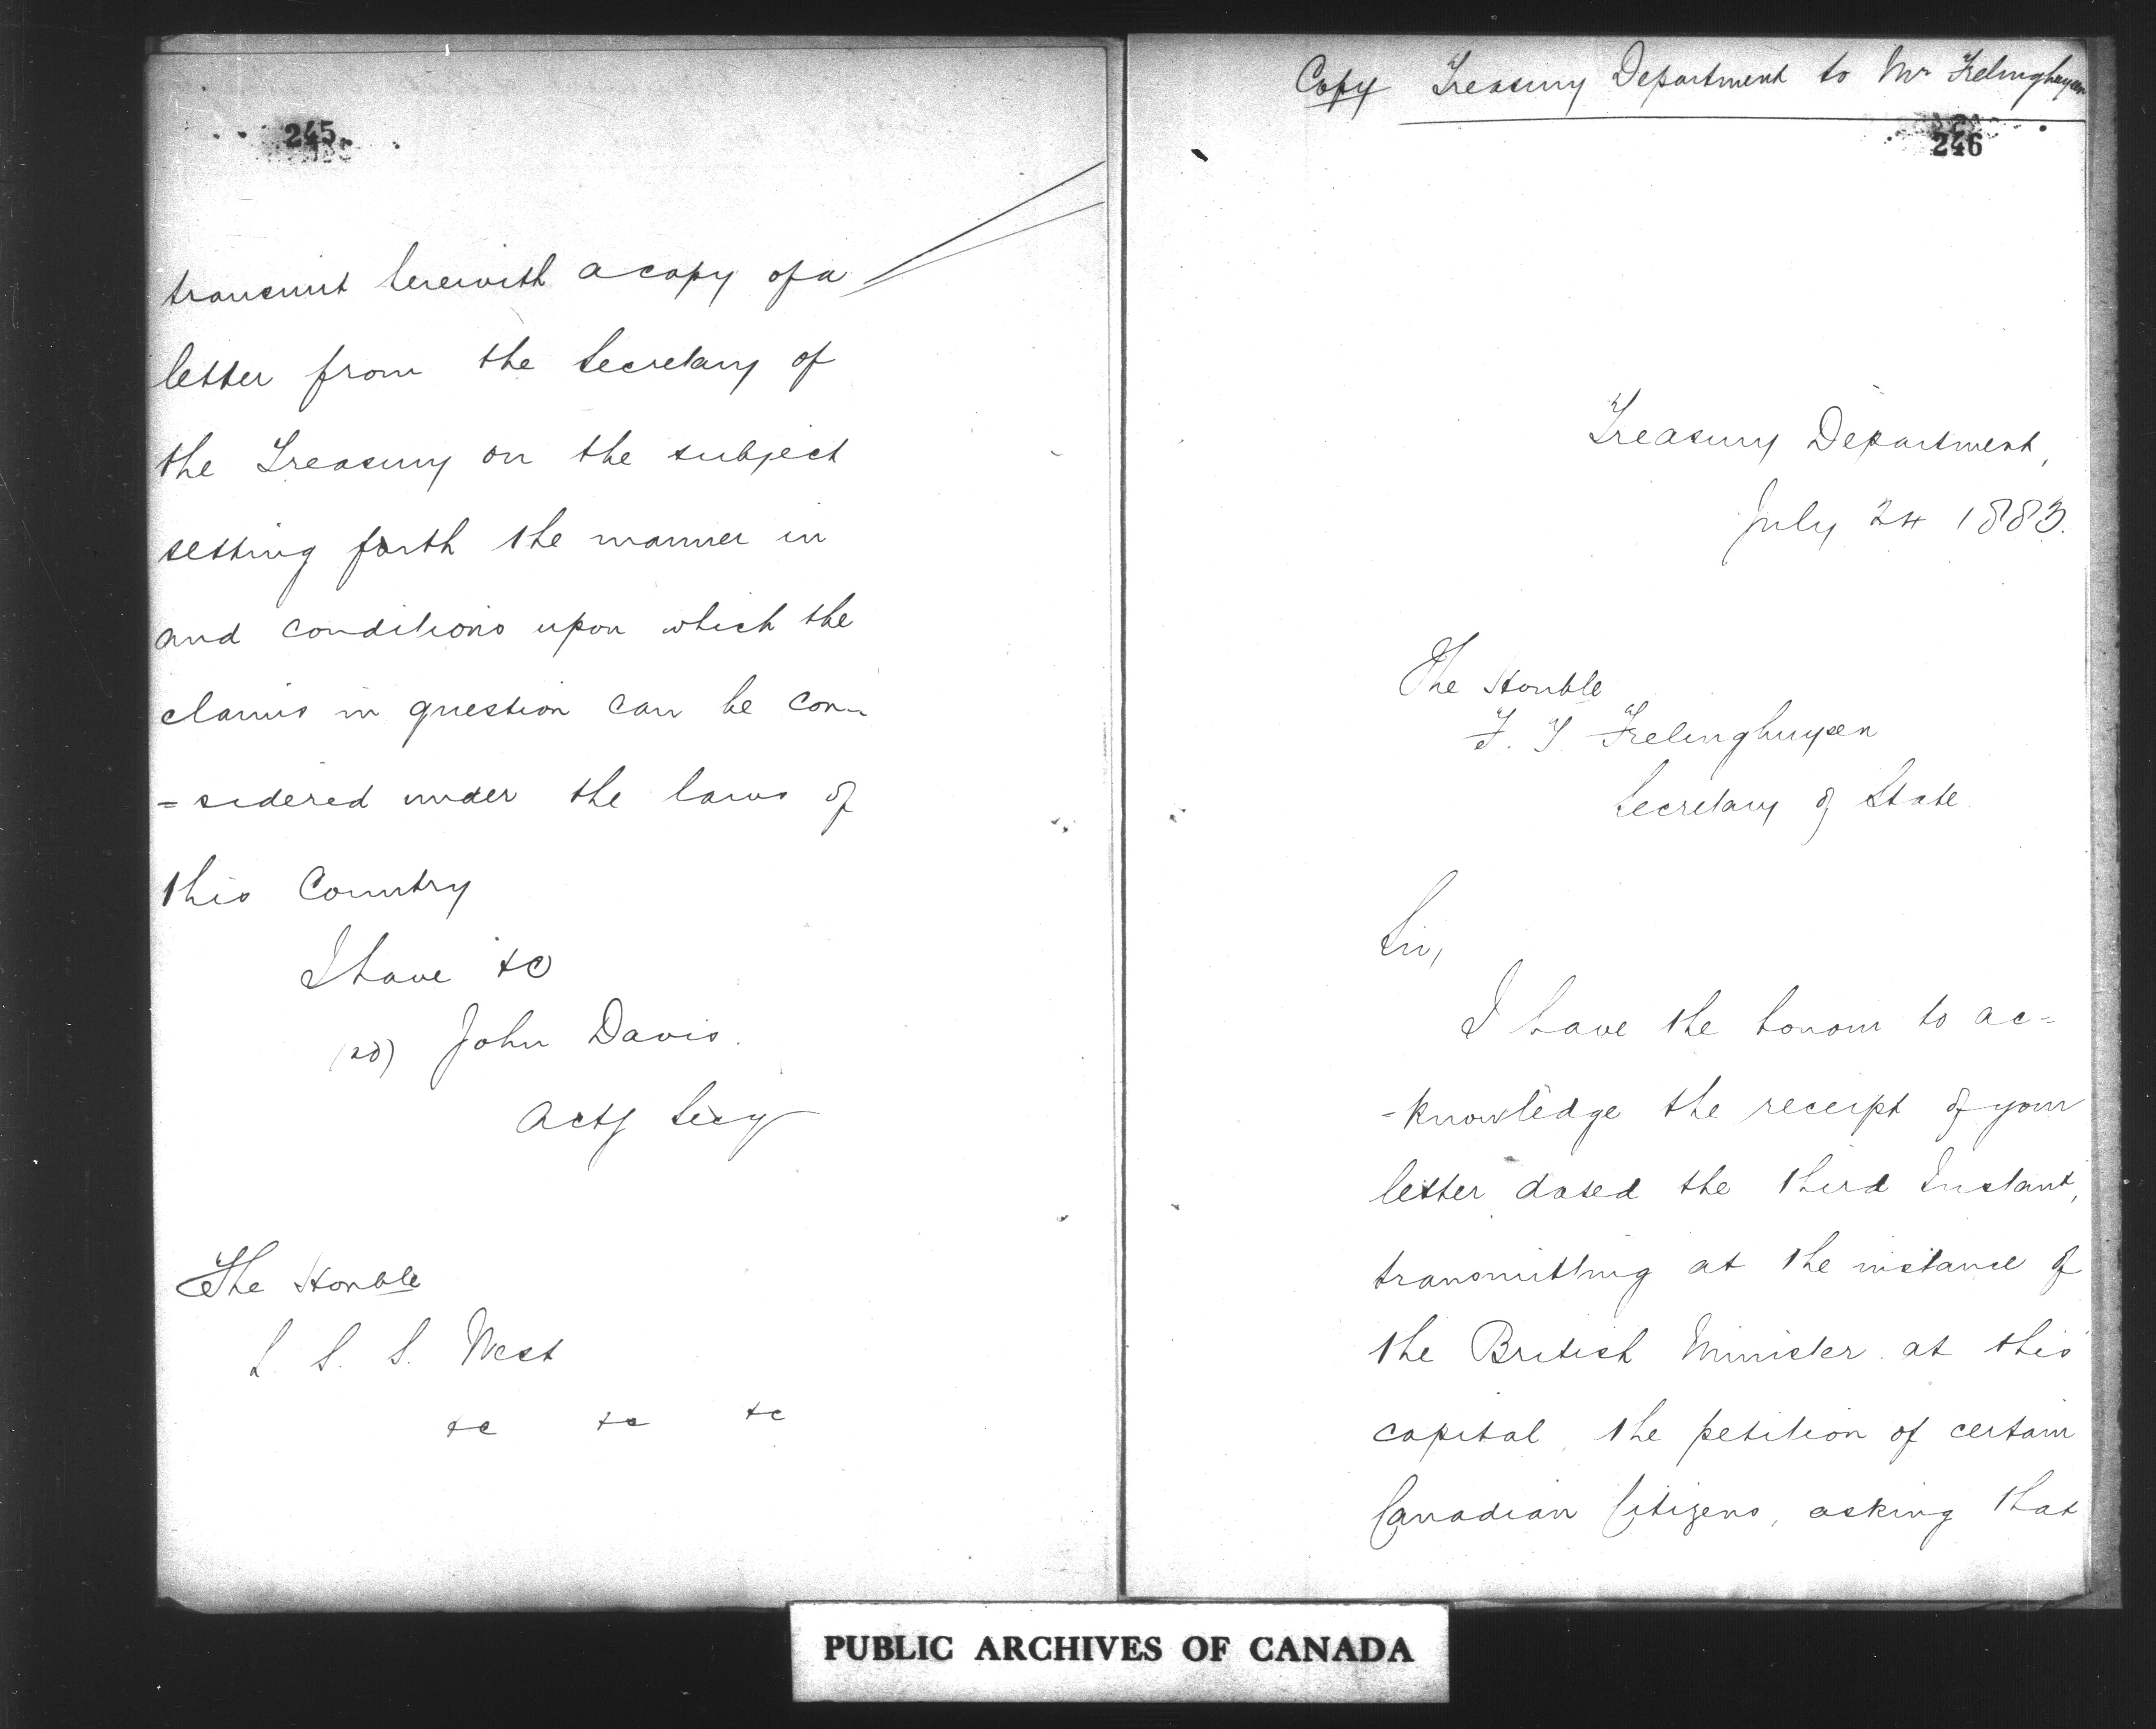 245
transmit herewith a copy of a
letter from the Secretary of
the Treasury on the subject
setting forth the manner in
and conditions upon which the
claims in question can be con-
=sidered under the laws of
this Country
I have &c
(sd) John Davis.
Actg Secy
The Honble
L. S. S. West
&c &c &c
Copy Treasury Department to Mr Frelinghuysen
246
Treasury Department,
July 24 1883.
The Honble
F. T. Frelinghuysen
Secretary of State
Sir,
I have the honour to ac=
=knowledge the receipt of your
letter dated the third Instant,
transmitting at the instance of
the British Minister at this
capital, the petition of certain
Canadian Citizens, asking that
PUBLIC ARCHIVES OF CANADA